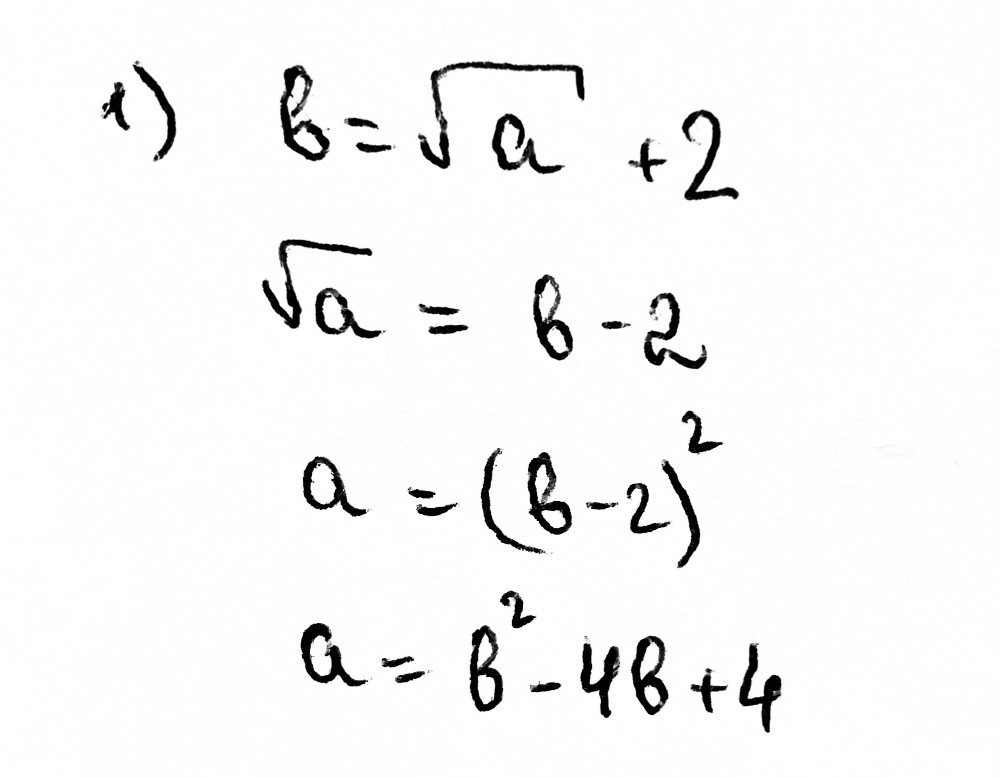 1) b = √a + 2
√a = b - 2
a = (b - 2)²
a = b² - 4b + 4